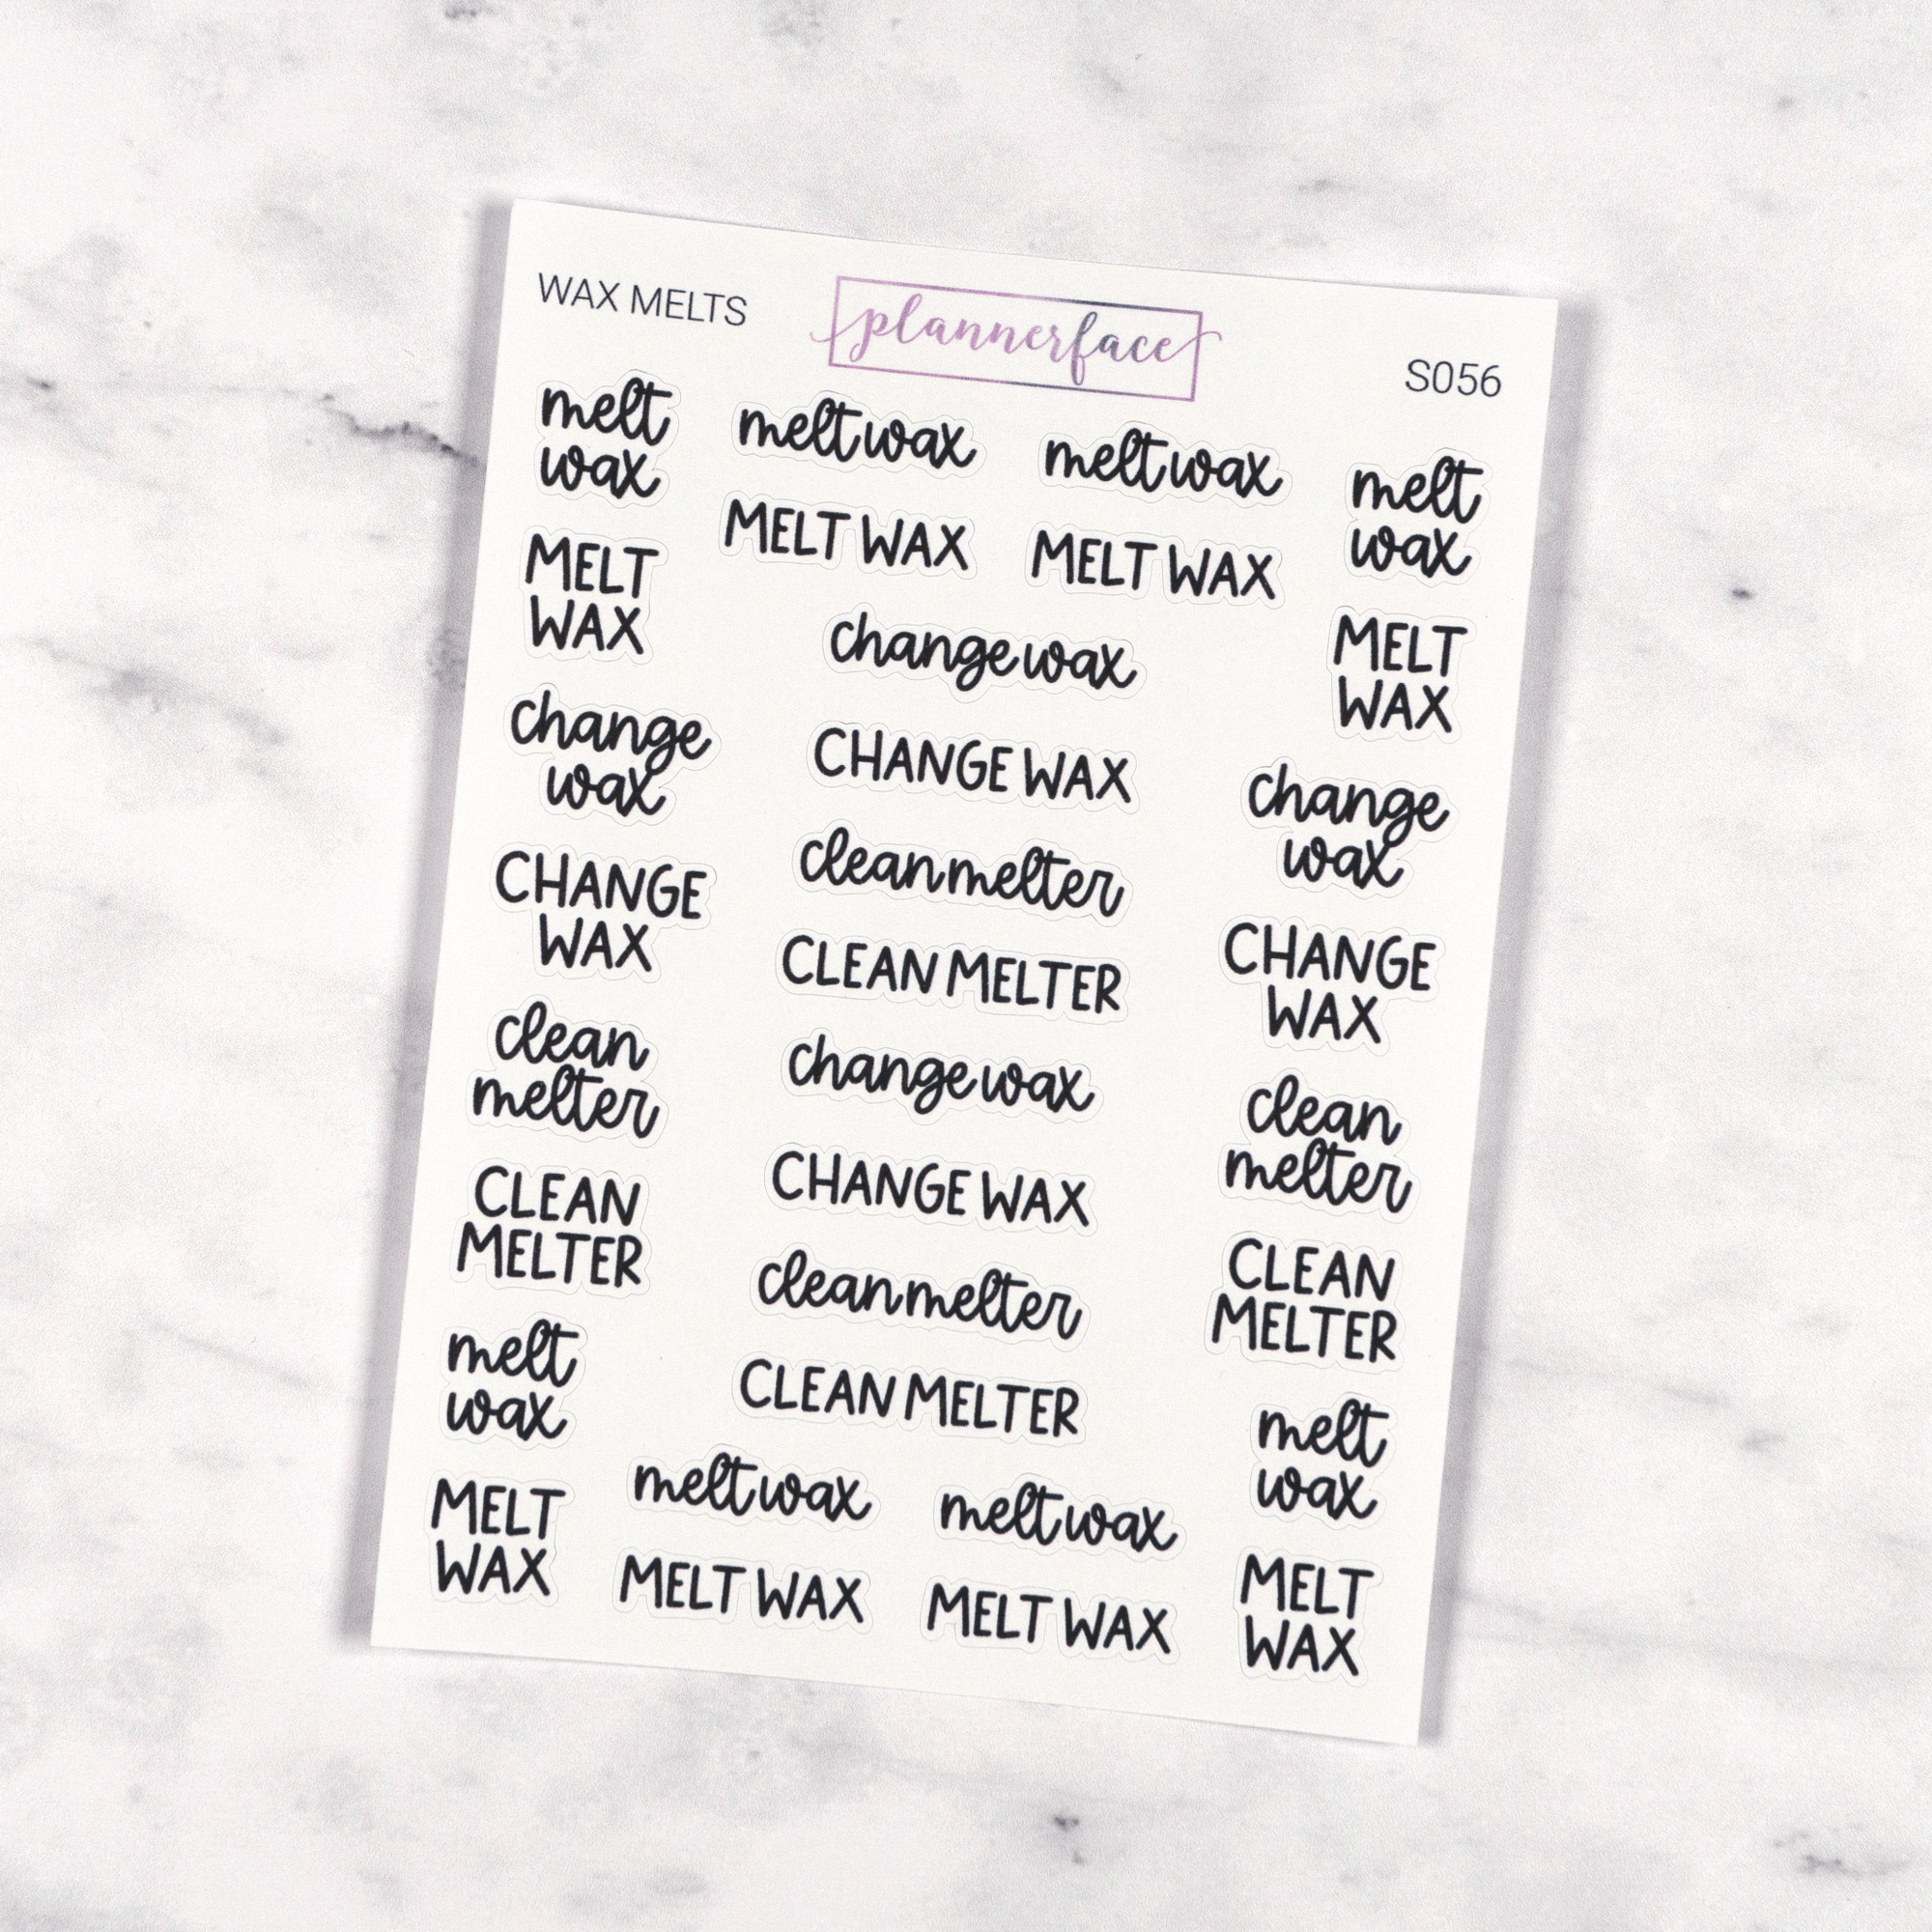 WAX MELTS
plannerface
S056
melt
wax
meltwax
meltwax
melt
wax
MELT
WAX
MELT WAX
MELT WAX
MELT
WAX
changewax
change
wax
CHANGE WAX
change
wax
cleanmelter
CHANGE
WAX
CLEAN MELTER
CHANGE
WAX
clean
melter
changewax
clean
melter
CLEAN
MELTER
CHANGE WAX
CLEAN
MELTER
cleanmelter
melt
wax
CLEAN MELTER
melt
wax
meltwax
meltwax
MELT
WAX
MELT WAX
MELT WAX
MELT
WAX